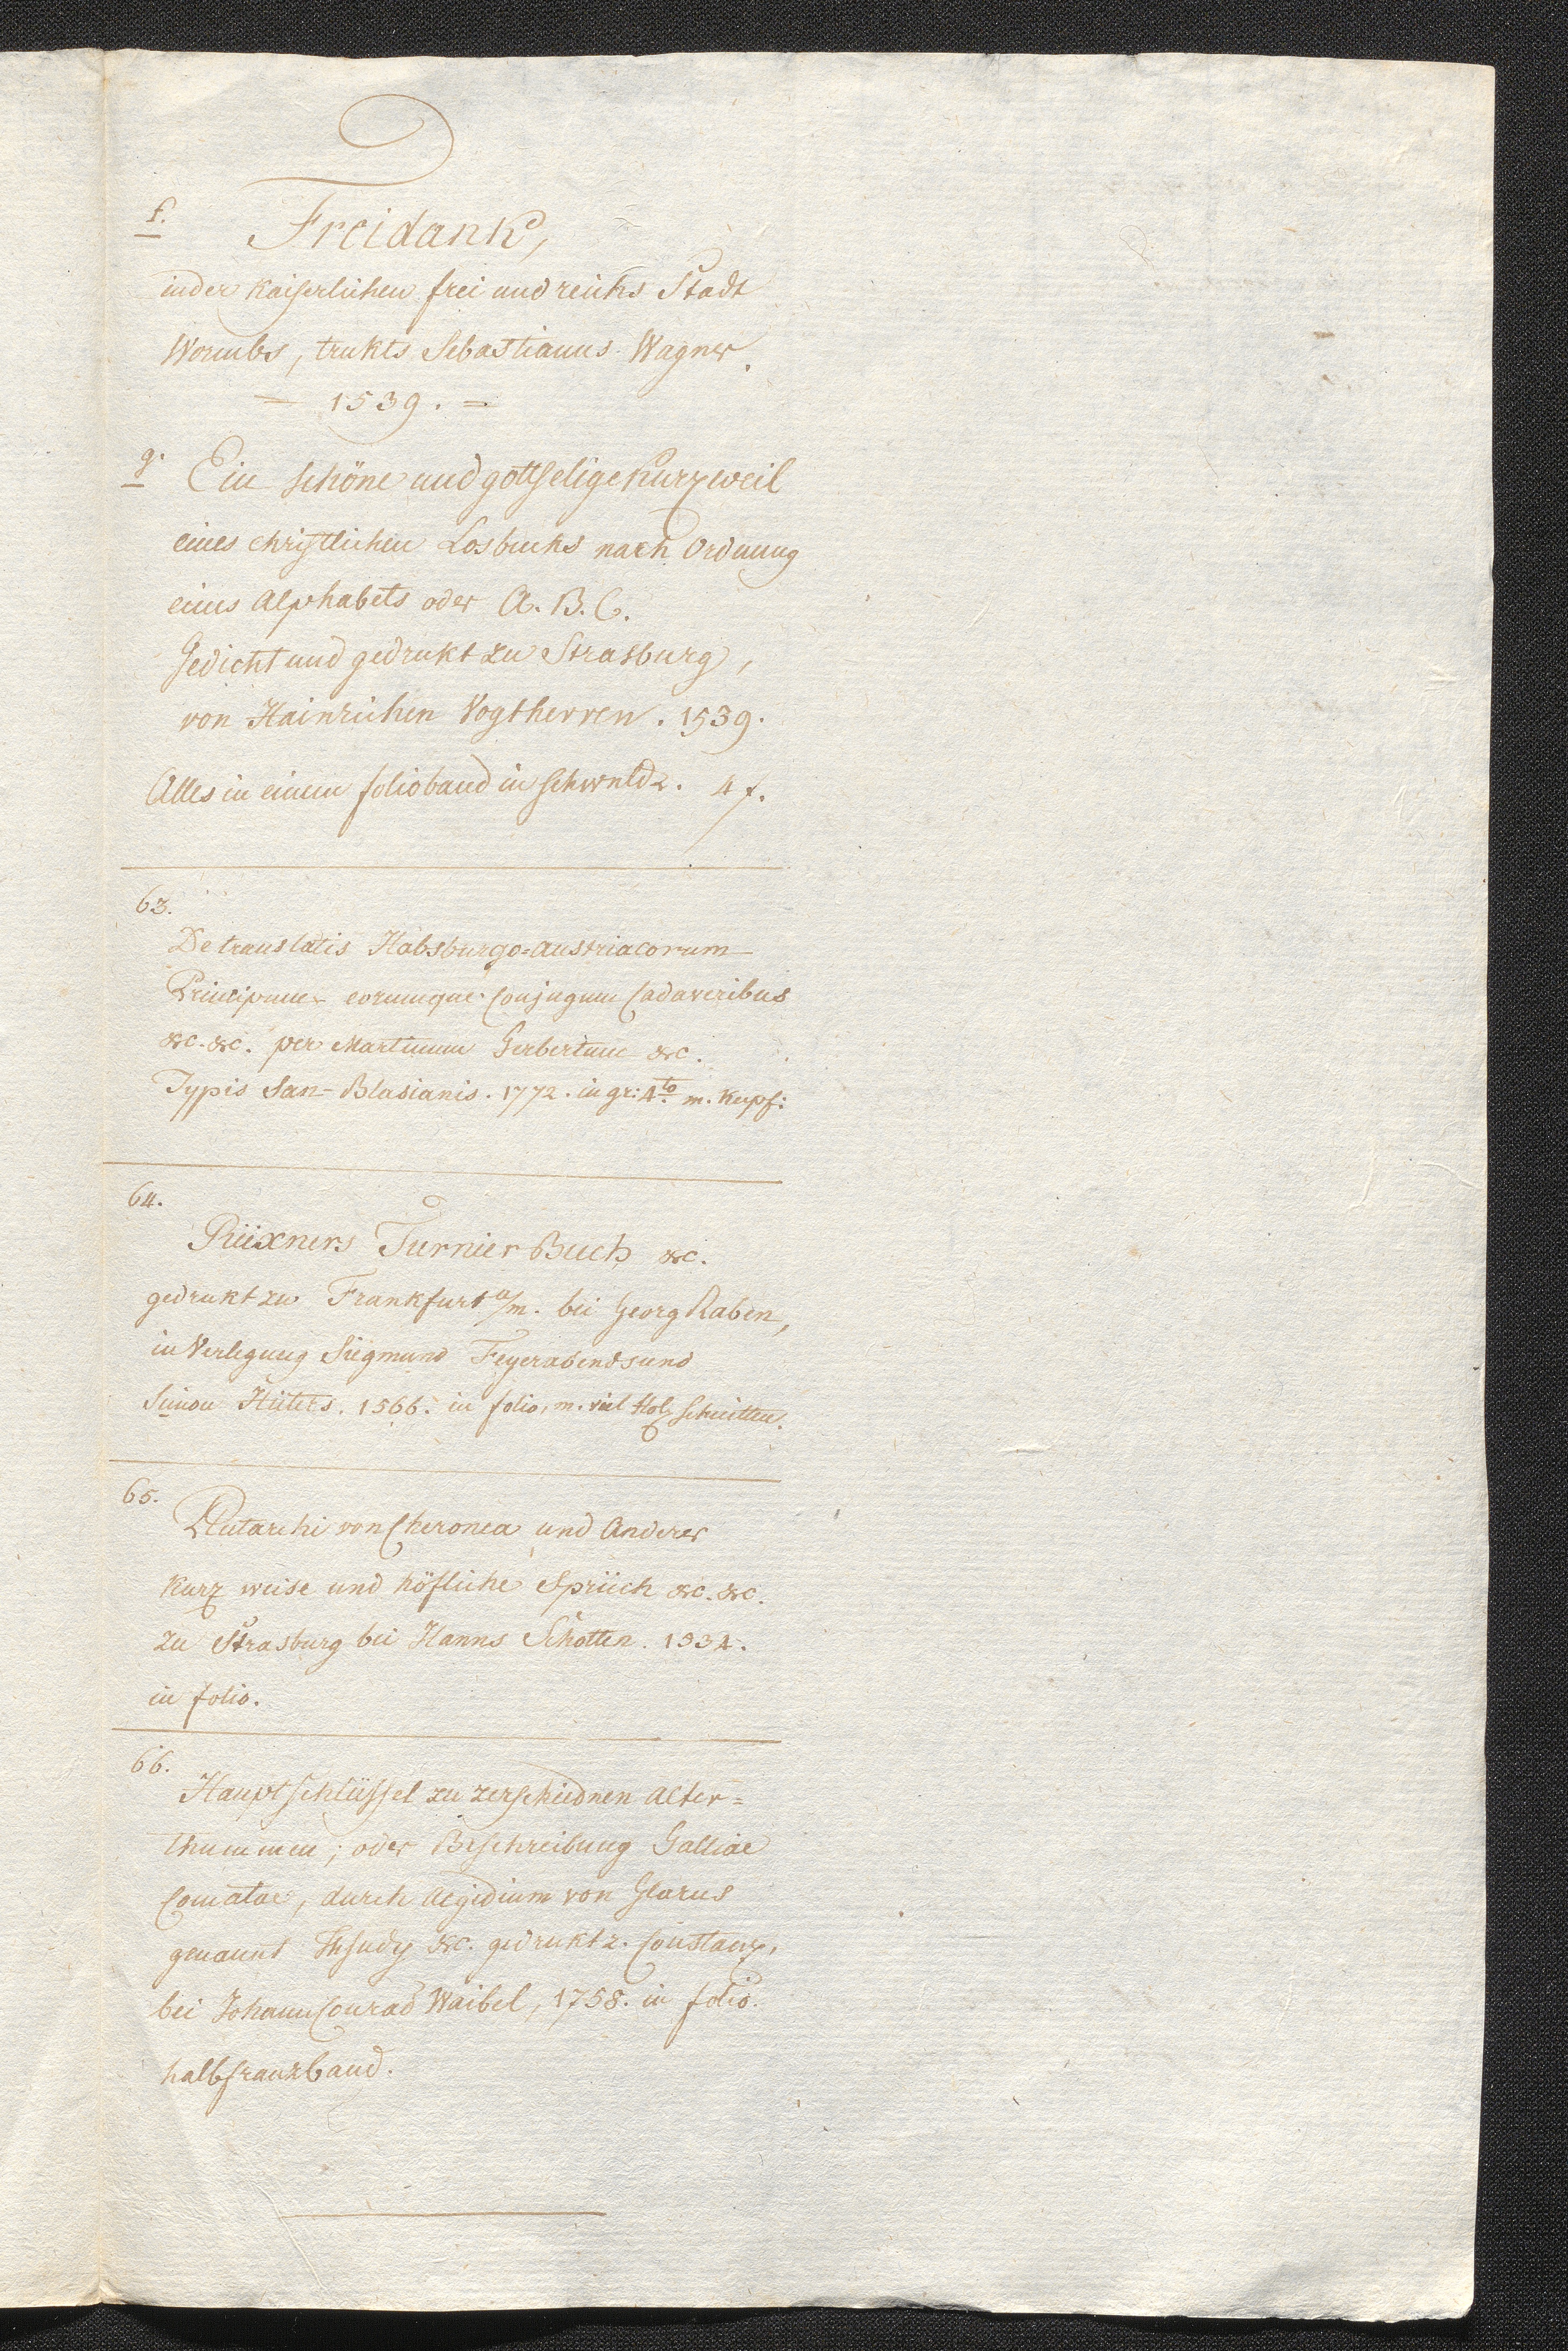 f.
Freidank,
in der Kaiserlichen frei und reichs Stadt
Wormbs, trukts Sebastianus Wagner.
= 1539. =
g.
Ein schöne und gottselige Kurzweil
eines christlichen Losbuchs nach Ordnung
eines Alphabets oder A. B. C.
Gedicht und gedrukt zu Strasburg,
von Hainrichen Vogtherren. 1539.
Alles in einem folioband in Schwnldr. 4 f.
63.
De translatis Habsburgo=Austriacorum
Principum eorumque Conjugum Cadaveribus
&c. &c. per Martinum Gerbertum &c.
Typis San-Blasianis. 1772. in gr: 4to m. Kupf:
64.
Rüxners Turnier Buch &c.
gedrukt zu Frankfurt a/m. bei Georg Raben,
in Verlegung Siegmund Feyerabends und
Simon Hüters. 1566. in folio, m. viel Holzschnitten.
65.
Plutarchi von Cheronea und Anderer
Kurz weise und höfliche Sprüch &c. &c.
zu Strasburg bei Hanns Schotten. 1534.
in folio.
66.
Hauptschlüssel zu zerschiednen Alter=
thummen; oder Beschreibung Galliae
Comatae, durch Aegidium von Glarus
genannt Thsudy &c. gedrukt z. Constanz,
bei Johann Conrad Waibel, 1758. in folio.
halbfranzband.